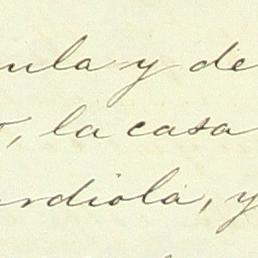 nula y de
, la casa
rdiola, y